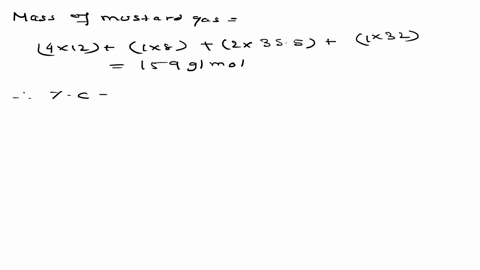 Mass of mustard gas =
(4×12) + (1×8) + (2×35.5) + (1×32)
= 159 g/mol
∴ %C =